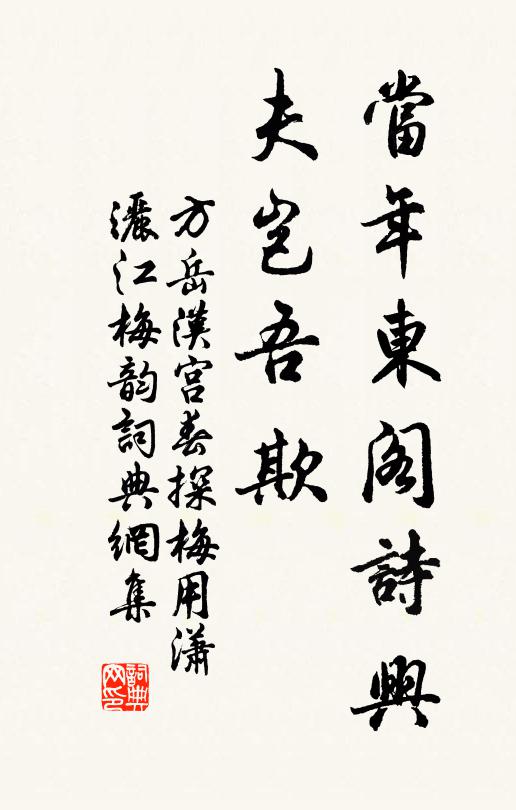 當年東閣詩興
夫豈吾欺
方岳漢宮春探梅用瀟
灑江梅韵詞典網集
詞典
网印